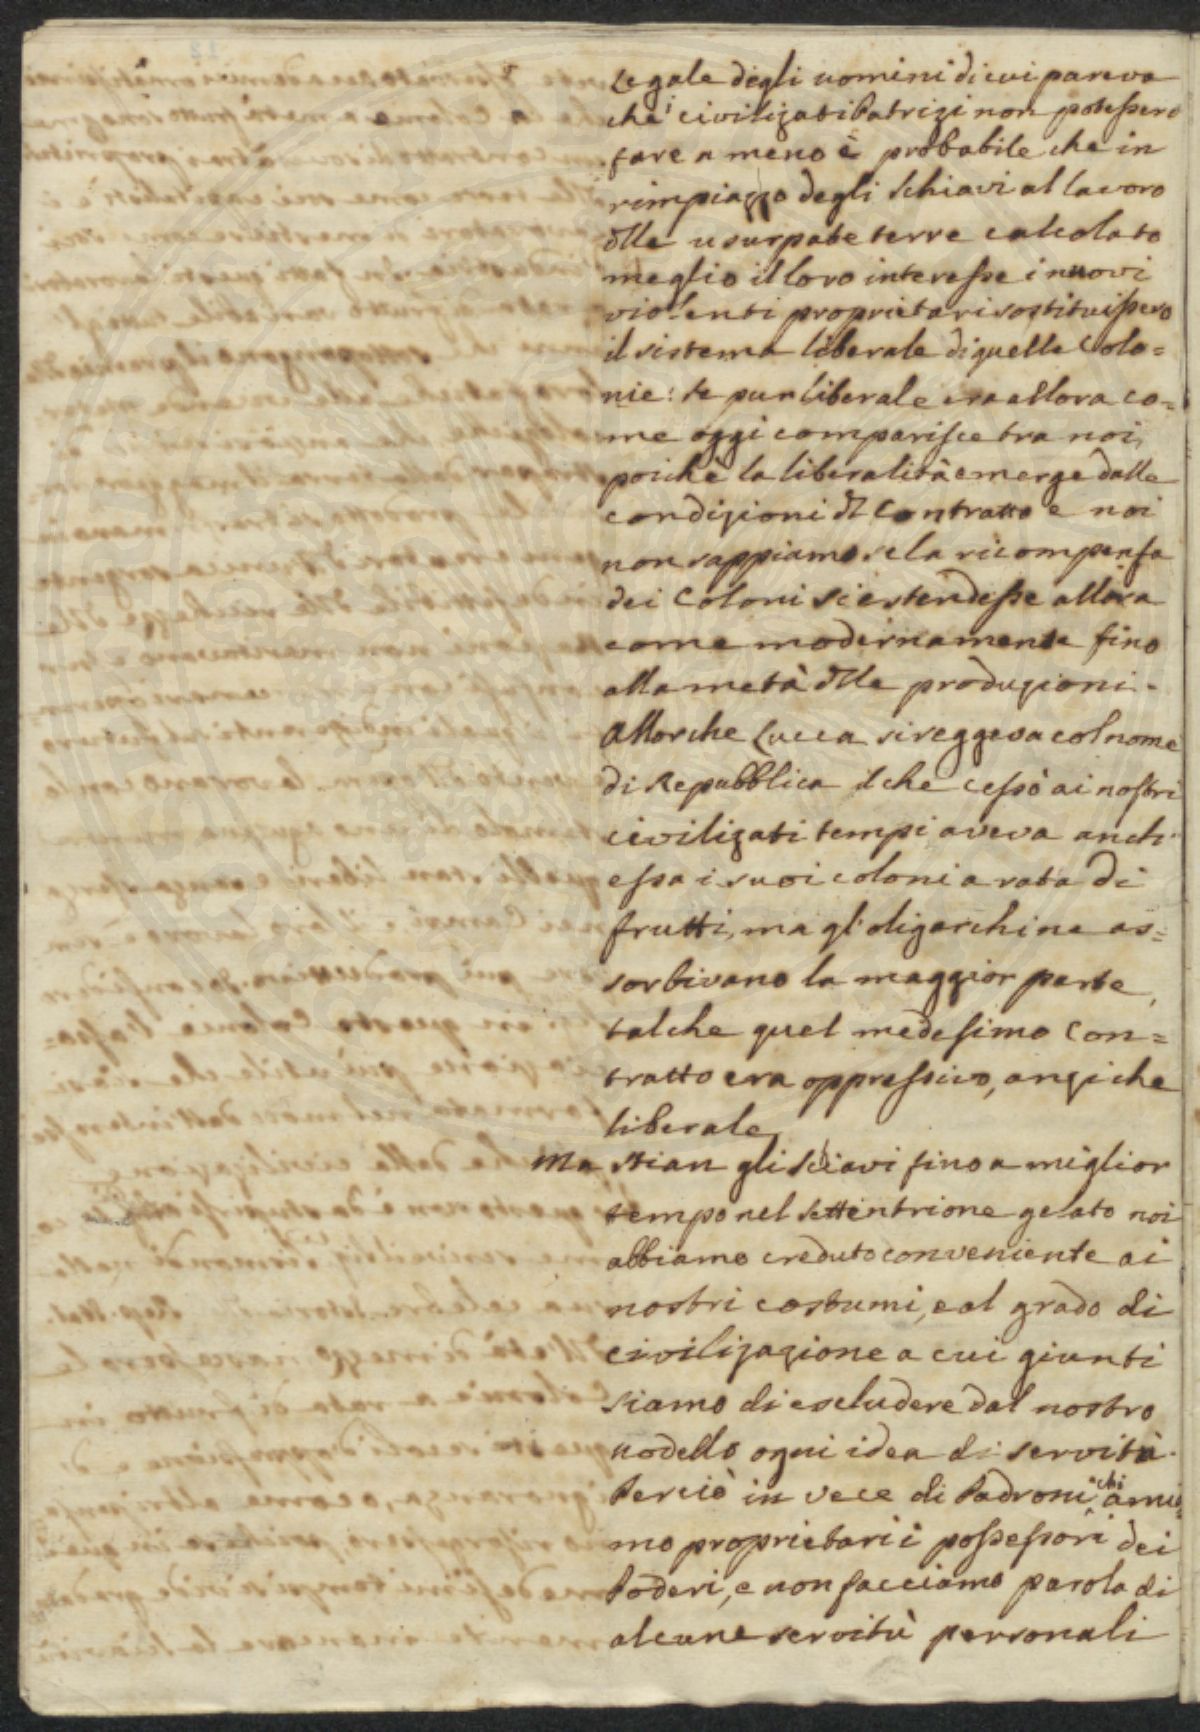 legale degli uomini di cui pareva
che i civilizati Patrizi non potessero
fare a meno è probabile che in
rimpiazzo degli schiavi al lavoro
dlle usurpate terre calcolato
meglio il loro interesse i nuovi
violenti proprietari sostituissero
il sistema liberale di quelle Colo=
nie: se pur liberale era allora co=
me oggi comparisce tra noi,
poichè la liberalità emerge dalle
condizioni dl Contratto e noi
non sappiamo se la ricompensa
dei Coloni si estendesse allora
come modernamente fino
alla metà dlle produzioni.
Allorche Lucca si reggeva col nome
di Repubblica il che cessò ai nostri
civilizati tempi aveva anch'
essa i suoi coloni a rata di
frutti, ma gl'oligarchi ne as=
sorbivano la maggior parte,
talche quel medesimo Con=
tratto era oppressivo, anziche
liberale
Ma stian gli schiavi fino a miglior
tempo nel settentrione gelato noi
abbiamo creduto conveniente ai
nostri costumi, e al grado di
civilizazione a cui giunti
siamo di escludere dal nostro
modello ogni idea di servitù.
Perciò in vece di Padroni chiamia=
mo proprietari i possessori dei
Poderi, e non facciamo parola di
alcune servitù personali